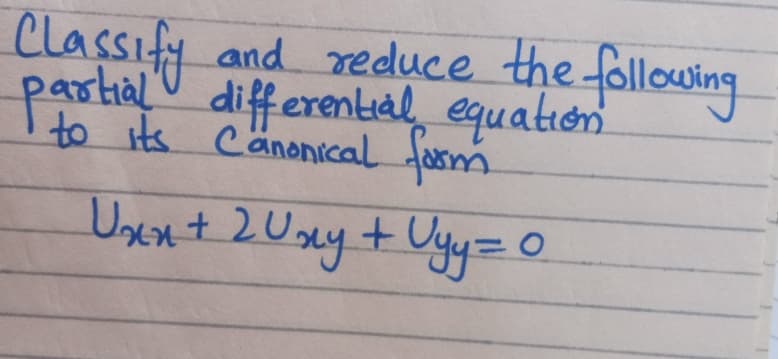 Classify and reduce the following
partial differential equation
to its Canonical form
Uxx + 2Uxy + Uyy = 0